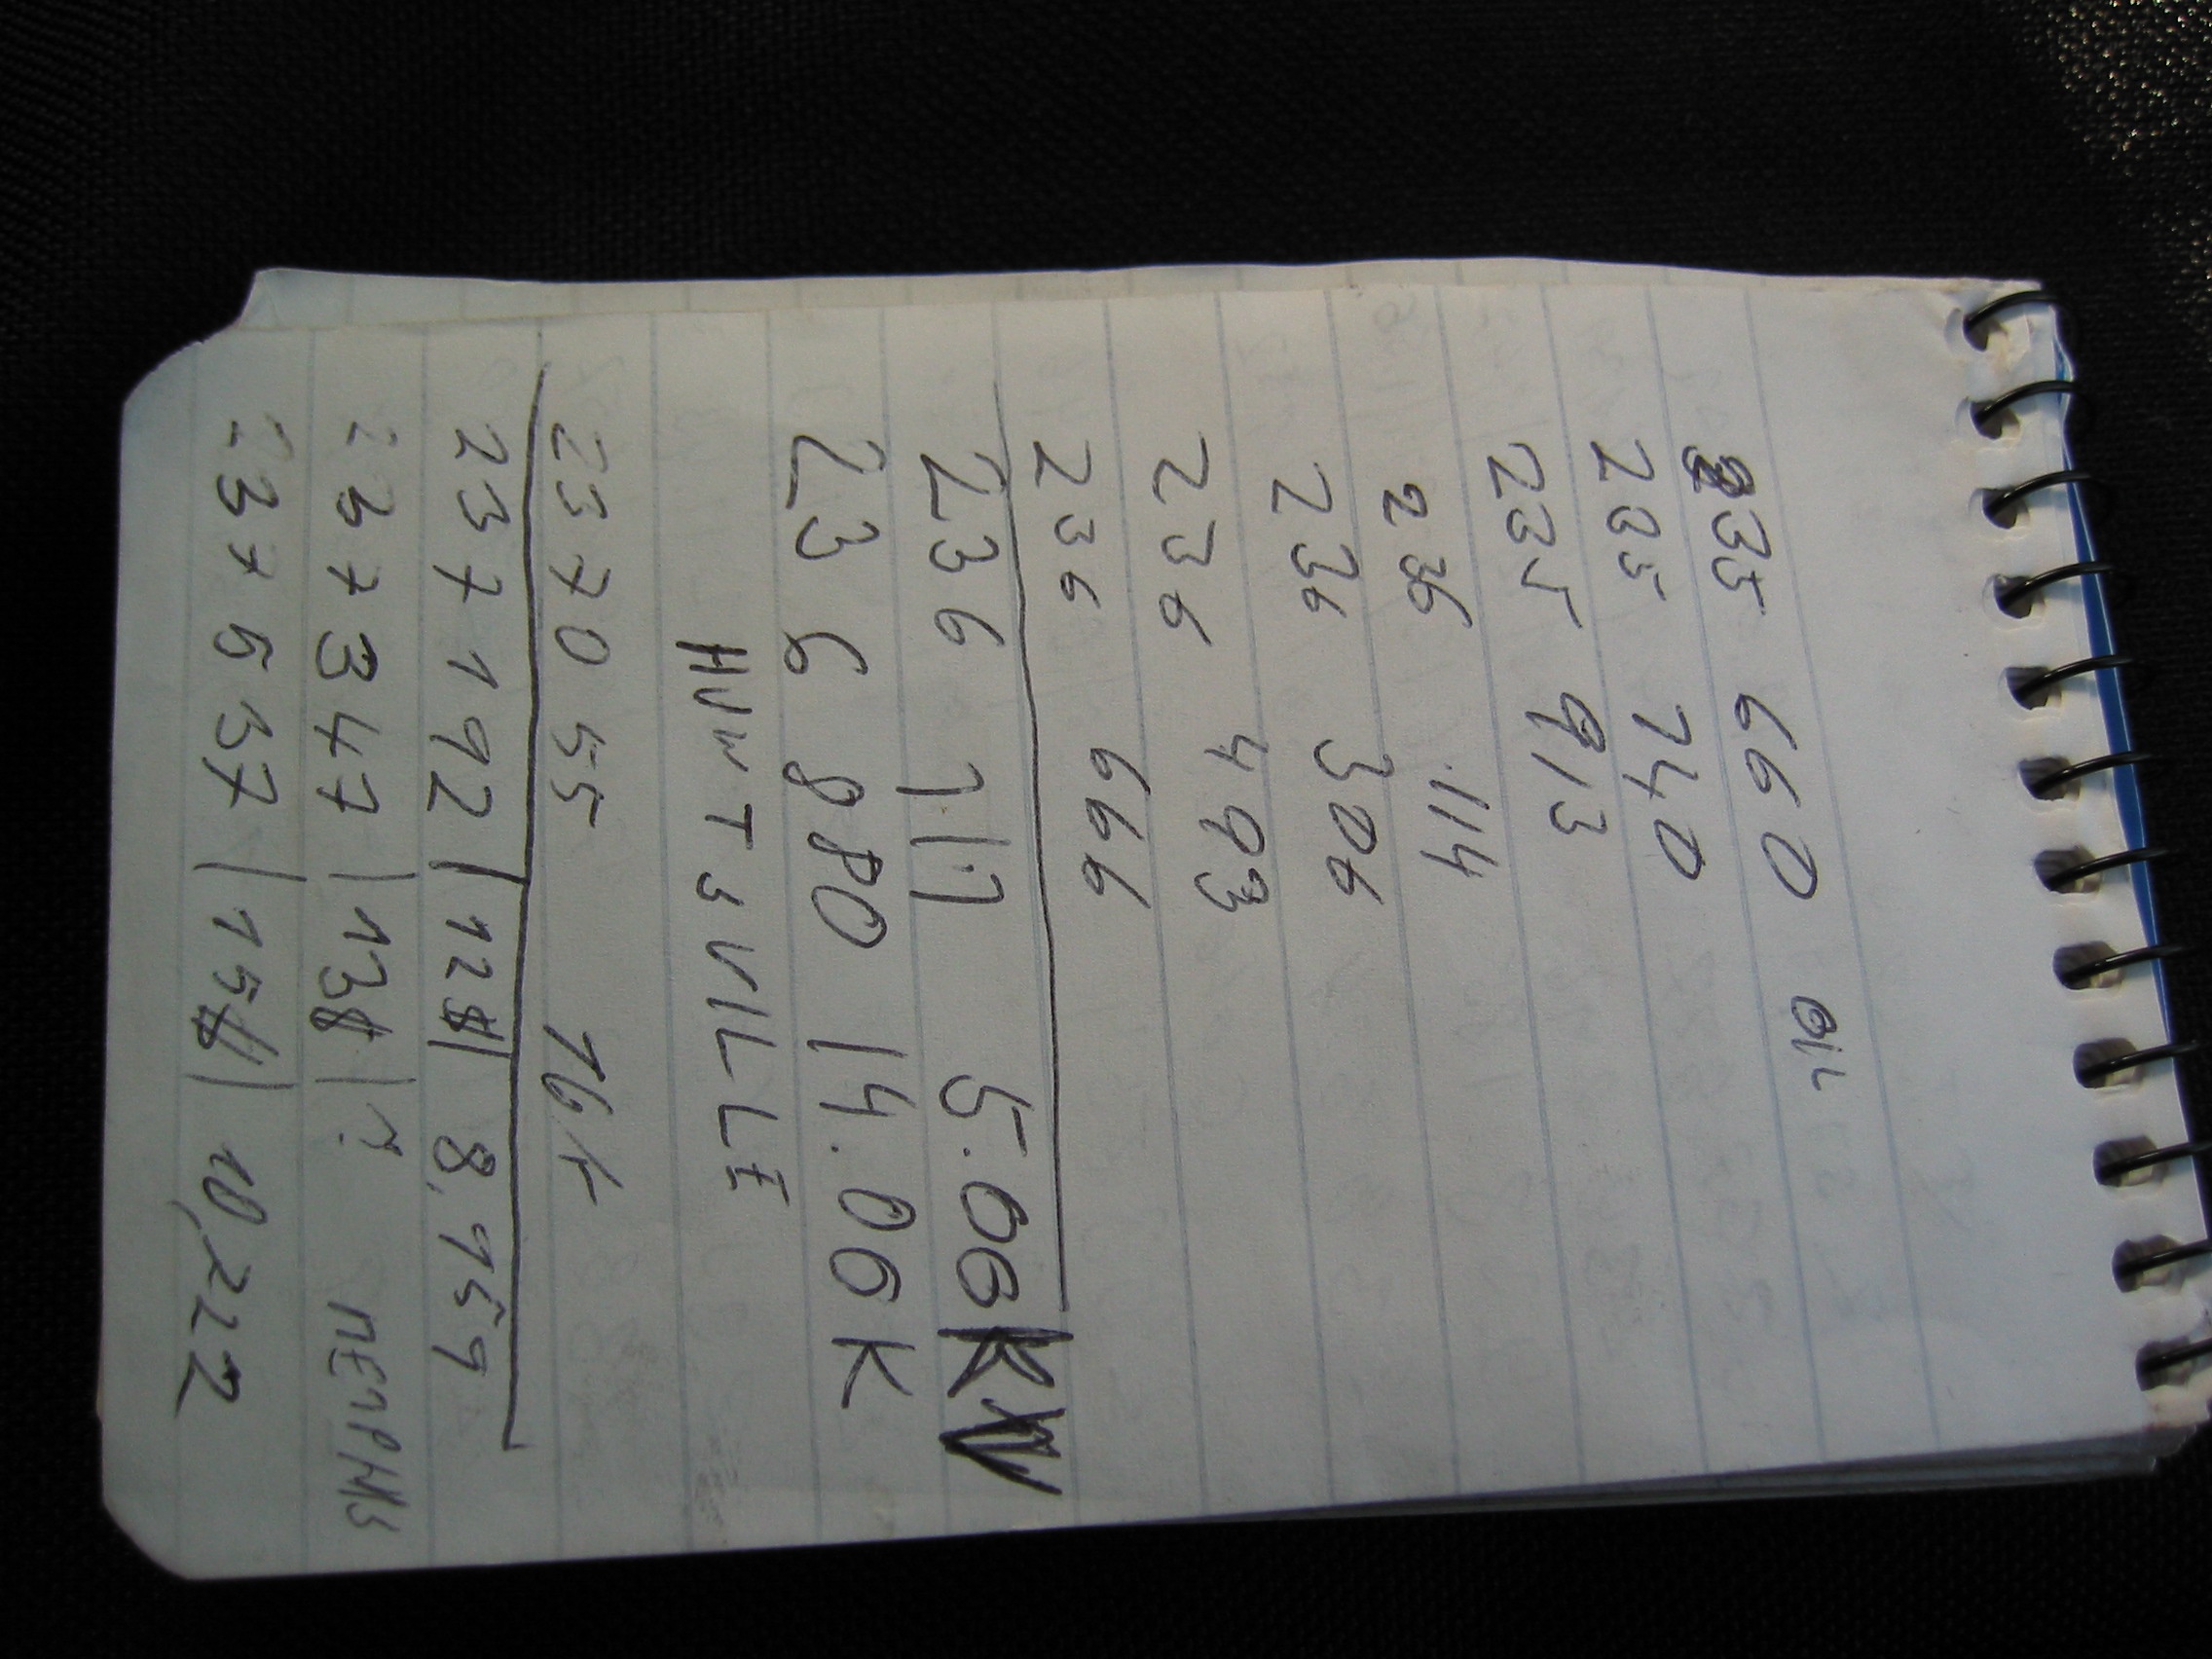 OIL
235 660
235 740
235 913
236 114
236 306
236 493
236 666
236 717 5.06K
23 6 880 14.06K
HUNTSVILLE
237055 16K
237192 | 12$ | 8,959
237347 | 13$ | ? MEMPHIS
237537 | 15$ | 10,222